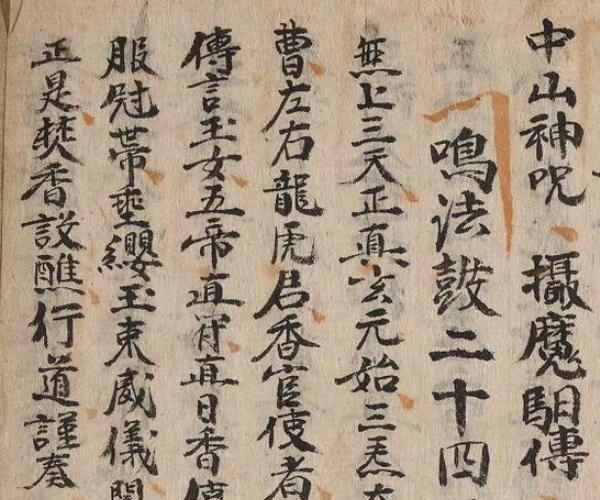 中山神呪、攝魔馹傳
鳴法鼓二十四
無上三天正真玄元始三炁
曹左右龍虎君香官使者
傳言玉女五帝直符直日香
服冠帶垂纓玉束威儀
正是焚香設醮行道謹奏